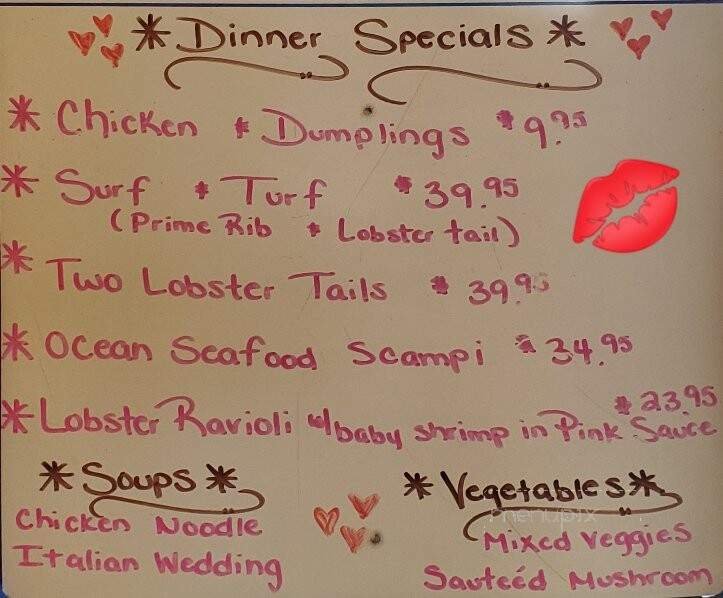 * Dinner Specials *
* Chicken & Dumplings $9.95
* Surf & Turf $39.95
(Prime Rib & Lobster tail)
* Two Lobster Tails $39.95
* Ocean Seafood Scampi $34.95
* Lobster Ravioli w/baby shrimp in Pink Sauce $23.95
* Soups *
Chicken Noodle
Italian Wedding
* Vegetables *
menupix
Mixed Veggies
Sauteéd Mushroom